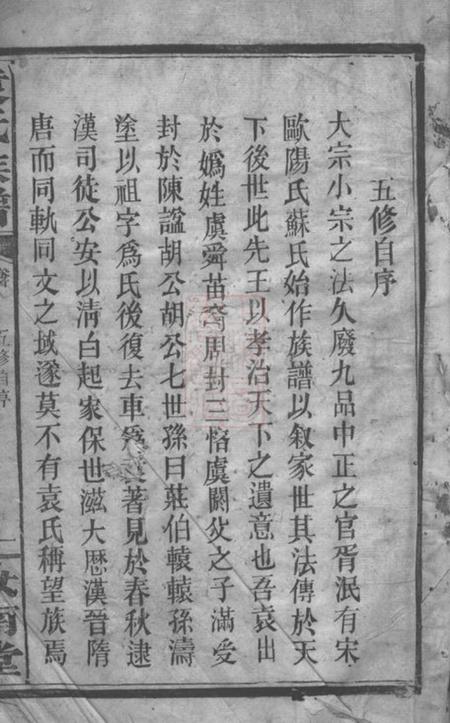 五修自序
大宗小宗之法久廢九品中正之官胥泯有宋
歐陽氏蘇氏始作族譜以敘家世其法傳於天
下後世此先王以孝治天下之遺意也吾袁出
於媯姓虞舜苗裔周封三恪虞閼父之子滿受
封於陳諡胡公胡公七世孫曰莊伯轅轅孫濤
塗以祖字爲氏後復去車爲袁著見於春秋逮
漢司徒公安以清白起家保世滋大歷漢晉隋
唐而同軌同文之域遂莫不有袁氏稱望族焉
氏族譜
五修自序
一
堂